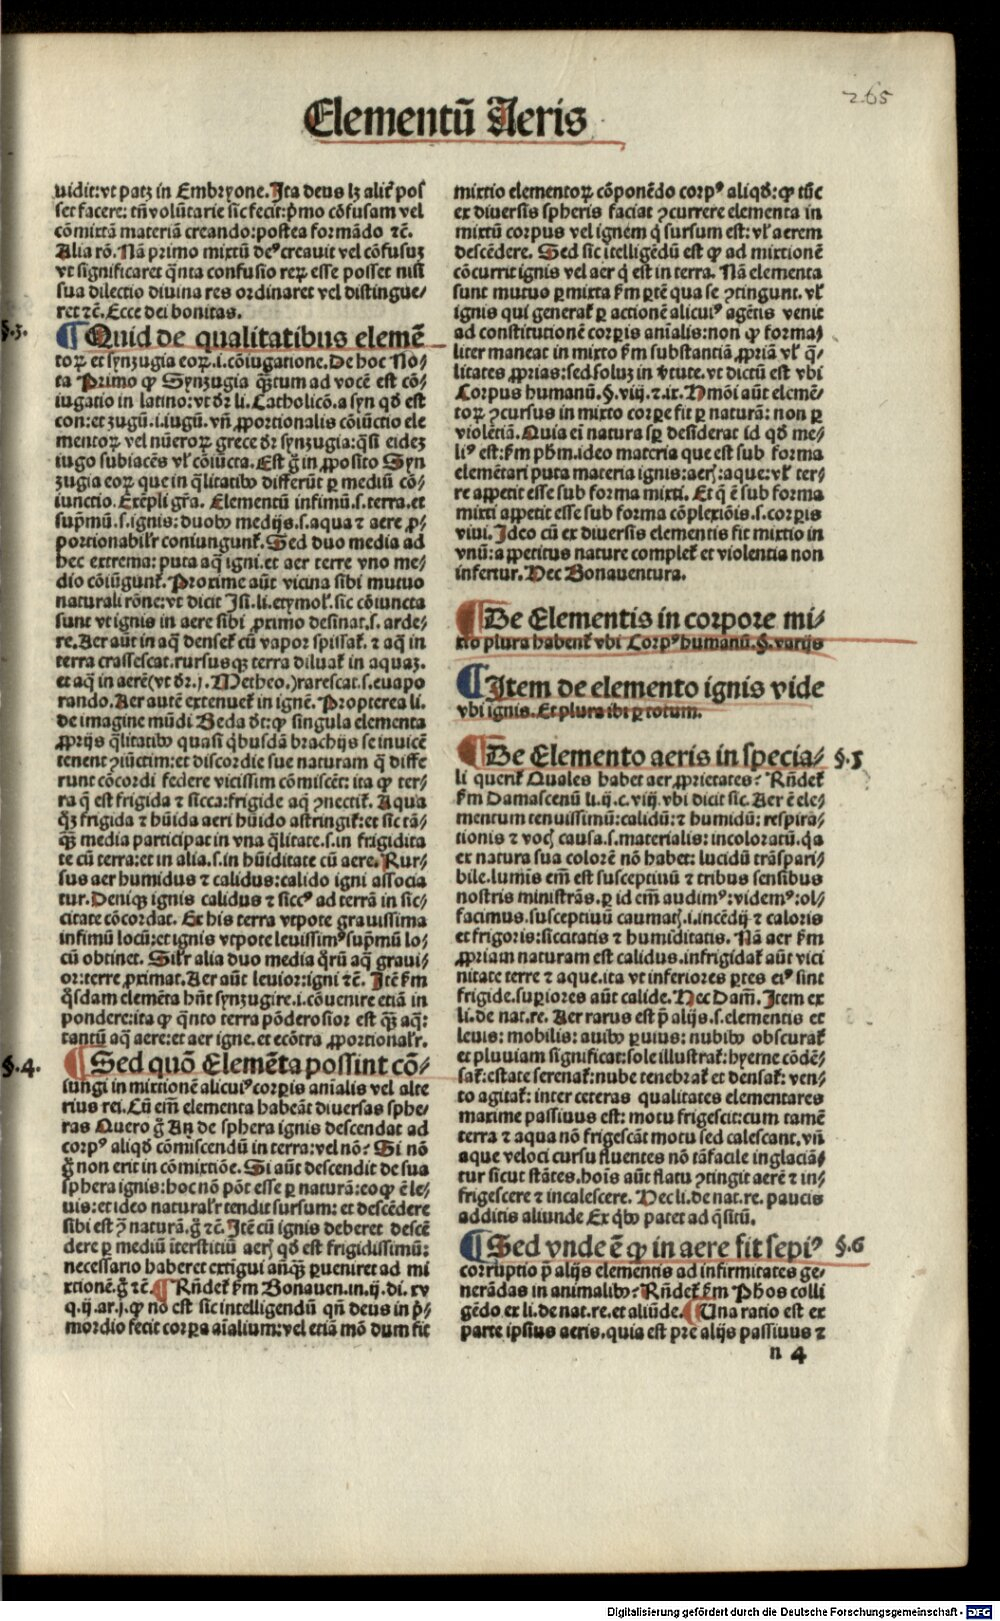 265
Elementū Aeris
uidit:vt patꝫ in Embryone. Ita deus lꝫ alit̉ pos
set facere: tñ volūtarie sic fecit: p̄mo cōfusam vel
cōmixtā materiā creando: postea formādo ⁊c̄.
Alia rō. Nā primo mixtū deꝰ creauit vel cōfusuꝫ
vt significaret q̄nta confusio reꝝ esse posset nisi
sua dilectio diuina res ordinaret vel distingue⸗
ret ⁊c̄. Ecce dei bonitas.
§.3.
¶ Quid de qualitatibus elemē
toꝝ et synzugia eoꝝ.i.cōiugatione. De hoc No⸗
ta Primo ꝙ Synzugia q̄ꝫtum ad vocē est cō⸗
iugatio in latino: vt dr̄ li. Catholicō. a syn qd̄ est
con: et zugū.i.iugū. vñ ꝓportionalis cōiūctio ele
mentoꝝ vel nūeroꝝ grece dr̄ synzugia: q̄si eideꝫ
iugo subiacēs vl̓ cōiūcta. Est g̊ in ꝓposito Syn
zugia eoꝝ que in q̄litatibꝰ differūt ꝑ mediū cō⸗
iunctio. Exēpli gr̄a. Elementū infimū.s.terra. et
sup̄mū.s.ignis: duobꝰ medijs.s.aqua ⁊ aere ꝓ⸗
portionabilr̓ coniungunt̉. Sed duo media ad
hec extrema: puta aq̄ igni. et aer terre vno me⸗
dio cōiūgunt̉. Proxime aūt vicina sibi mutuo
naturali rōne: vt dicit Isi. li. etymol̓. sic cōiuncta
sunt vt ignis in aere sibi ꝓximo desinat.s. arde⸗
re. Aer aūt in aq̄ denset̉ cū vapor spissat̉. ⁊ aq̄ in
terra crassescat. rursusqꝫ terra diluat̉ in aquaꝫ.
et aq̄ in aerē(vt dr̄.j. Metheo.)rarescat.s.euapo
rando. Aer autē extenuet̉ in ignē. Propterea li.
de imagine mūdi Beda dt̄: ꝙ singula elementa
ꝓprijs q̄litatibꝰ quasi q̄busdā brachijs se inuicē
tenent ꝯiūctim: et discordie sue naturam q̄ diffe
runt cōcordi federe vicissim cōmiscēt: ita ꝙ ter⸗
ra q̄ est frigida ⁊ sicca: frigide aq̄ ꝯnectit̉. Aqua
q̄ꝫ frigida ⁊ hūida aeri hūido astringit̉: et sic tā⸗
q̄ꝫ media participat in vna q̄litate.s.in frigidita
te cū terra: et in alia.s.in hūiditate cū aere. Rur⸗
sus aer humidus ⁊ calidus: calido igni associa
tur. Deniqꝫ ignis calidus ⁊ siccꝰ ad terrā in sic⸗
citate cōcordat. Ex his terra vtpote grauissima
infimū locū: et ignis vtpote leuissimꝰ sup̄mū lo⸗
cū obtinet. Silr̓ alia duo media q̄rū aq̄ graui⸗
or: terre ꝓximat. Aer aūt leuior: igni ⁊c̄. Itē f̄m
q̄sdam elemēta hn̄t synzugire.i.cōuenire etiā in
pondere: ita ꝙ q̄nto terra pōderosior est q̄ꝫ aq̄:
tantū aq̄ aere: et aer igne. et ecōtra ꝓportionalr̓.
§.4.
¶ Sed quō Elemēta possint cō⸗
iungi in mixtionē alicuiꝰ corꝑis aīalis vel alte
rius rei. Cū em̄ elementa habeāt diuersas sphe⸗
ras Quero g̊ An de sphera ignis descendat ad
corpꝰ aliqd̄ cōmiscendū in terra: vel nō? Si nō
g̊ non erit in cōmixtiōe. Si aūt descendit de sua
sphera ignis: hoc nō pōt esse ꝑ naturā: eo ꝙ ē le⸗
uis: et ideo naturalr̓ tendit sursum: et descēdere
sibi est ꝯ̄ naturā. g̊ ⁊c̄. Itē cū ignis deberet descē
dere ꝑ mediū īterstitiū aeris qd̄ est frigidissimū:
necessario haberet extigui añq̄ꝫ ꝑueniret ad mi
xtionē. g̊ ⁊c̄. ¶ Rn̄det̉ f̄m Bonauen. in.ij. di. xv
q.ij.ar.j. ꝙ nō est sic intelligendū qn̄ deus in p̄⸗
mordio fecit corꝑa aīalium: vel etiā mō dum fit
mixtio elementoꝝ cōponēdo corpꝰ aliqd̄: ꝙ tūc
ex diuersis spheris faciat ꝯcurrere elementa in
mixtū corpus vel ignem q̄ sursum est: vl̓ aerem
descēdere. Sed sic itelligēdū est ꝙ ad mixtionē
cōcurrit ignis vel aer q̄ est in terra. Nā elementa
sunt mutuo ꝑmixta f̄m ꝑtē qua se ꝯtingunt. vl̓
ignis qui generat̉ ꝑ actionē alicuiꝰ agētis venit
ad constitutionē corꝑis aīalis: non ꝙ forma⸗
liter maneat in mixto f̄m substantiā ꝓpriā vl̓ q̄⸗
litates ꝓprias: sed soluꝫ in v̓tute. vt dictū est vbi
Corpus humanū. §. viij. ⁊.ix. Hmōi aūt elemē⸗
toꝝ ꝯcursus in mixto corꝑe fit ꝑ naturā: non ꝑ
violētiā. Quia ei natura sꝑ desiderat id qd̄ me⸗
liꝰ est: f̄m ph̄m. ideo materia que est sub forma
elemētari puta materia ignis: aeris: aque: vl̓ ter⸗
re appetit esse sub forma mixti. Et q̄ ē sub forma
mixti appetit esse sub forma cōplexiōis.s.corꝑis
viui. Ideo cū ex diuersis elementis fit mixtio in
vnū: appetitus nature complet̉ et violentia non
infertur. Hec Bonauentura.
¶ De Elementis in corpore mi⸗
xto plura habent̉ vbi Corpꝰ humanū. §. varijs
¶ Item de elemento ignis vide
vbi ignis. Et plura ibi ꝑ totum.
¶ De Elemento aeris in specia⸗
§.5
li querit̉ Quales habet aer ꝓprietates? Rn̄det̉
f̄m Damascenū li.ij.c.viij. vbi dicit sic. Aer ē ele⸗
mentum tenuissimū: calidū: ⁊ humidū: respira⸗
tionis ⁊ vocis causa.s.materialis: incoloratū. qa
ex natura sua colorē nō habet: lucidū trāspari⸗
bile. luminis em̄ est susceptiuū ⁊ tribus sensibus
nostris ministrās. ꝑ id em̄ audimꝰ: videmꝰ: ol⸗
facimus. susceptiuū caumatis.i.incēdij ⁊ caloris
et frigoris: siccitatis ⁊ humiditatis. Nā aer f̄m
ꝓpriam naturam est calidus. infrigidat̉ aūt vici
nitate terre ⁊ aque. ita vt inferiores ꝑtes eiꝰ sint
frigide. superiores aūt calide. Hec Dam̄. Item ex
li. de nat. re. Aer rarus est p̄ alijs.s.elementis et
leuis: mobilis: auibꝰ ꝑuius: nubibꝰ obscurat̉
et pluuiam significat: sole illustrat̉: hyeme cōdē⸗
sat̉: estate serenat̉: nube tenebrat̉ et densat̉: ven⸗
to agitat̉: inter ceteras qualitates elementares
maxime passiuus est: motu frigescit: cum tamē
terra ⁊ aqua nō frigescāt motu sed calescant. vñ
aque veloci cursu fluentes nō tā facile inglaciā⸗
tur sicut stātes. hoīs aūt flatu ꝯtingit aerē ⁊ in⸗
frigescere ⁊ incalescere. Hec li. de nat. re. paucis
additis aliunde Ex q̄bꝰ patet ad q̄sitū.
¶ Sed vnde ē ꝙ in aere fit sepiꝰ
§.6
corruptio p̄ alijs elementis ad infirmitates ge⸗
nerādas in animalibꝰ? Rn̄det̉ f̄m Ph̄os colli
gēdo ex li. de nat. re. et aliūde. ¶ Una ratio est ex
parte ipsius aeris. quia est pre alijs passiuus ⁊
n 4
Digitalisierung gefördert durch die Deutsche Forschungsgemeinschaft - DFG